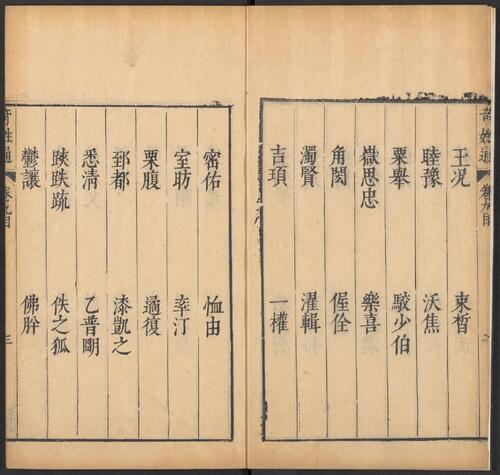 奇姓通 卷九目
王況 束晳
睦豫 沃焦
粟舉 駮少伯
嶽思忠 樂喜
角閎 偓佺
濁賢 濯輯
吉頊 一權
密佑 恤由
室昉 幸汀
栗腹 適復
郅都 漆凱之
悉清 乙普明
䟽跌疏 佚之狐
鬱讓 佛肸
奇姓通 卷九目 三